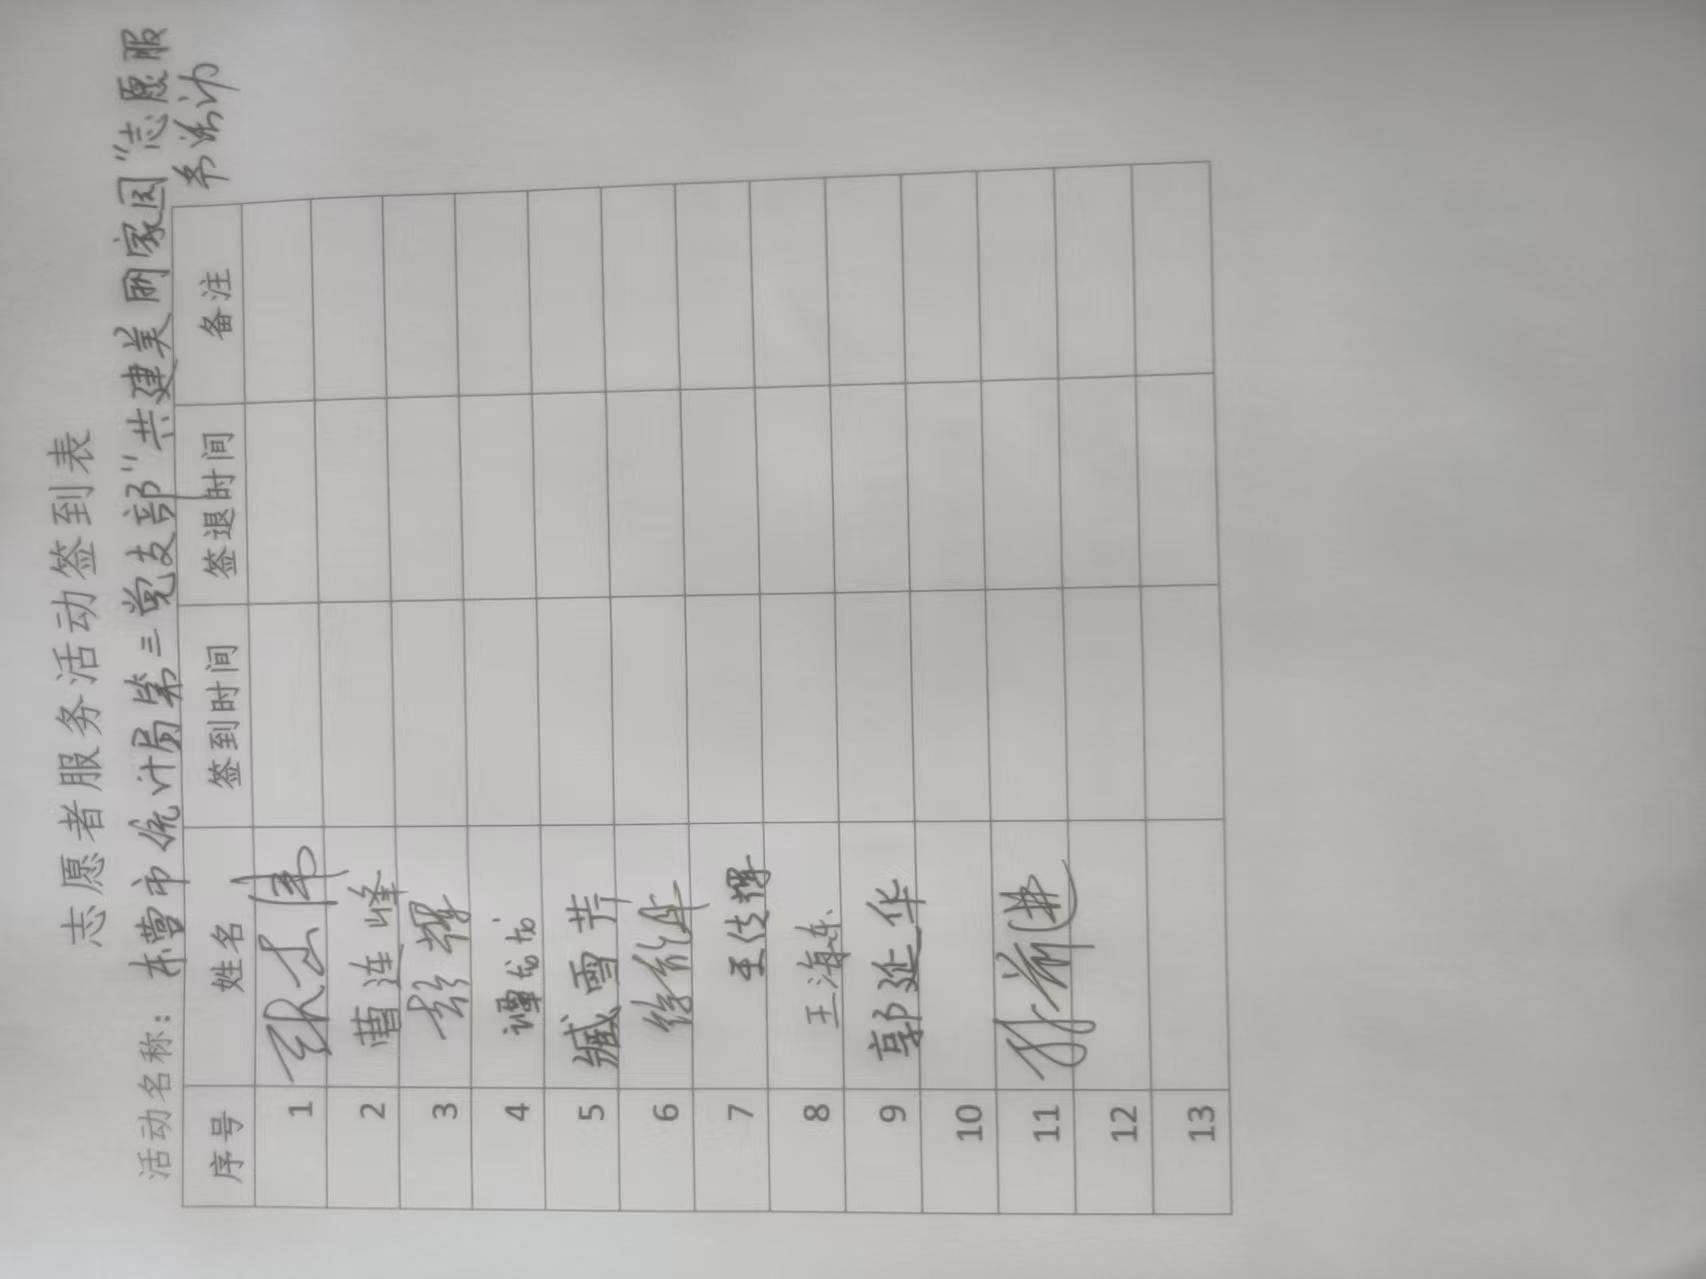 志愿者服务活动签到表
活动名称：东营市统计局第三党支部"共建美丽家园"志愿服
务活动
序号 姓名 签到时间 签退时间 备注
1
2 曹连峰
3 彭辉
4 谭龙龙
5 臧雪芳
6
7 王传辉
8 王海东
9 郭延华
10
11
12
13